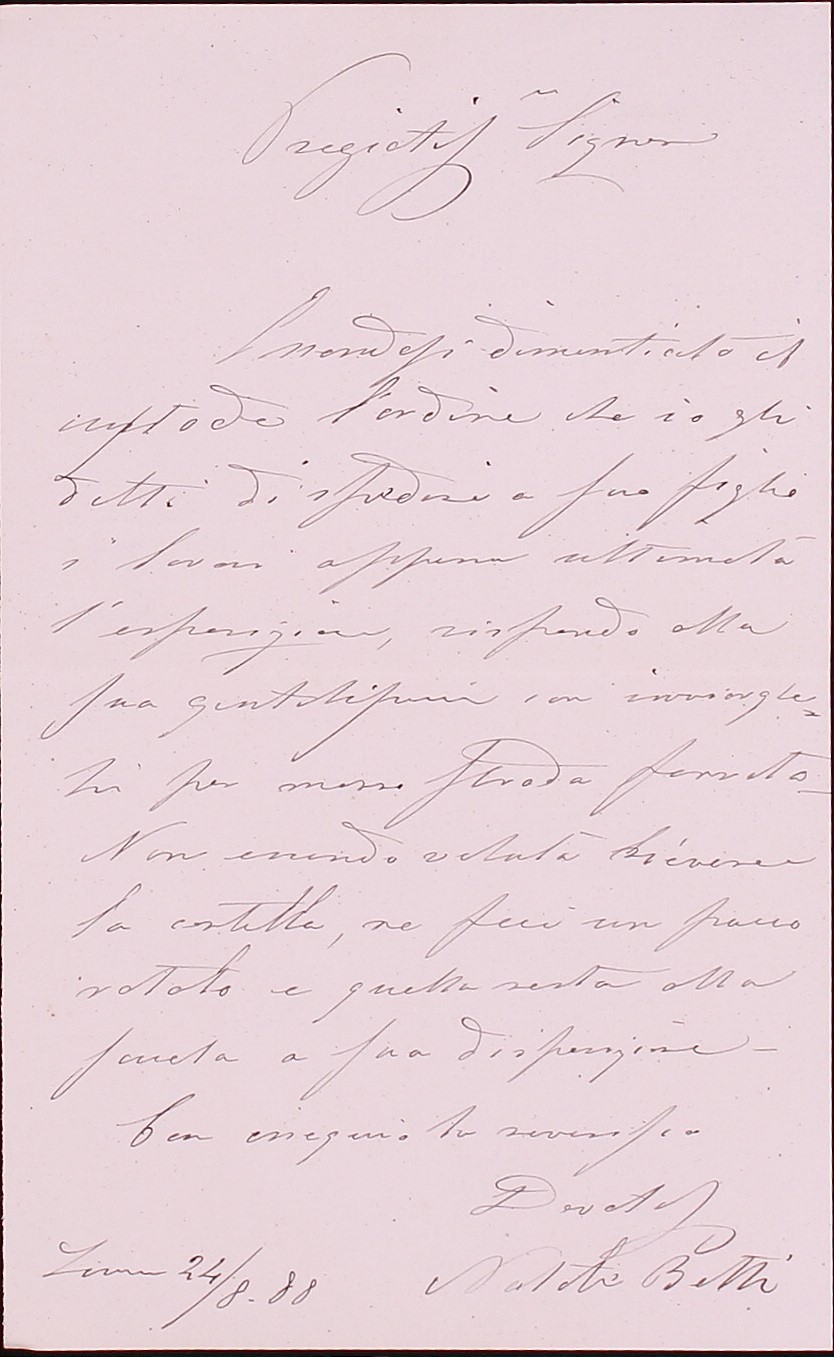 Pregiatis.mo Signor
Essendosi dimenticato il
custode l'ordine che io gli
detti di spedire a suo figlio
i lavori appena ultimata
l'esposizione, rispondo alla
sua gentilissima con inviarglie-
li per mezzo strada ferrata.
Non essendo voluta ricevere
la cartella, ne feci un pacco
rotolo e quella resta alla
scuola a sua disposizione –
Con ossequio la riverisco
Devotis
Natale Betti
24/8. 88